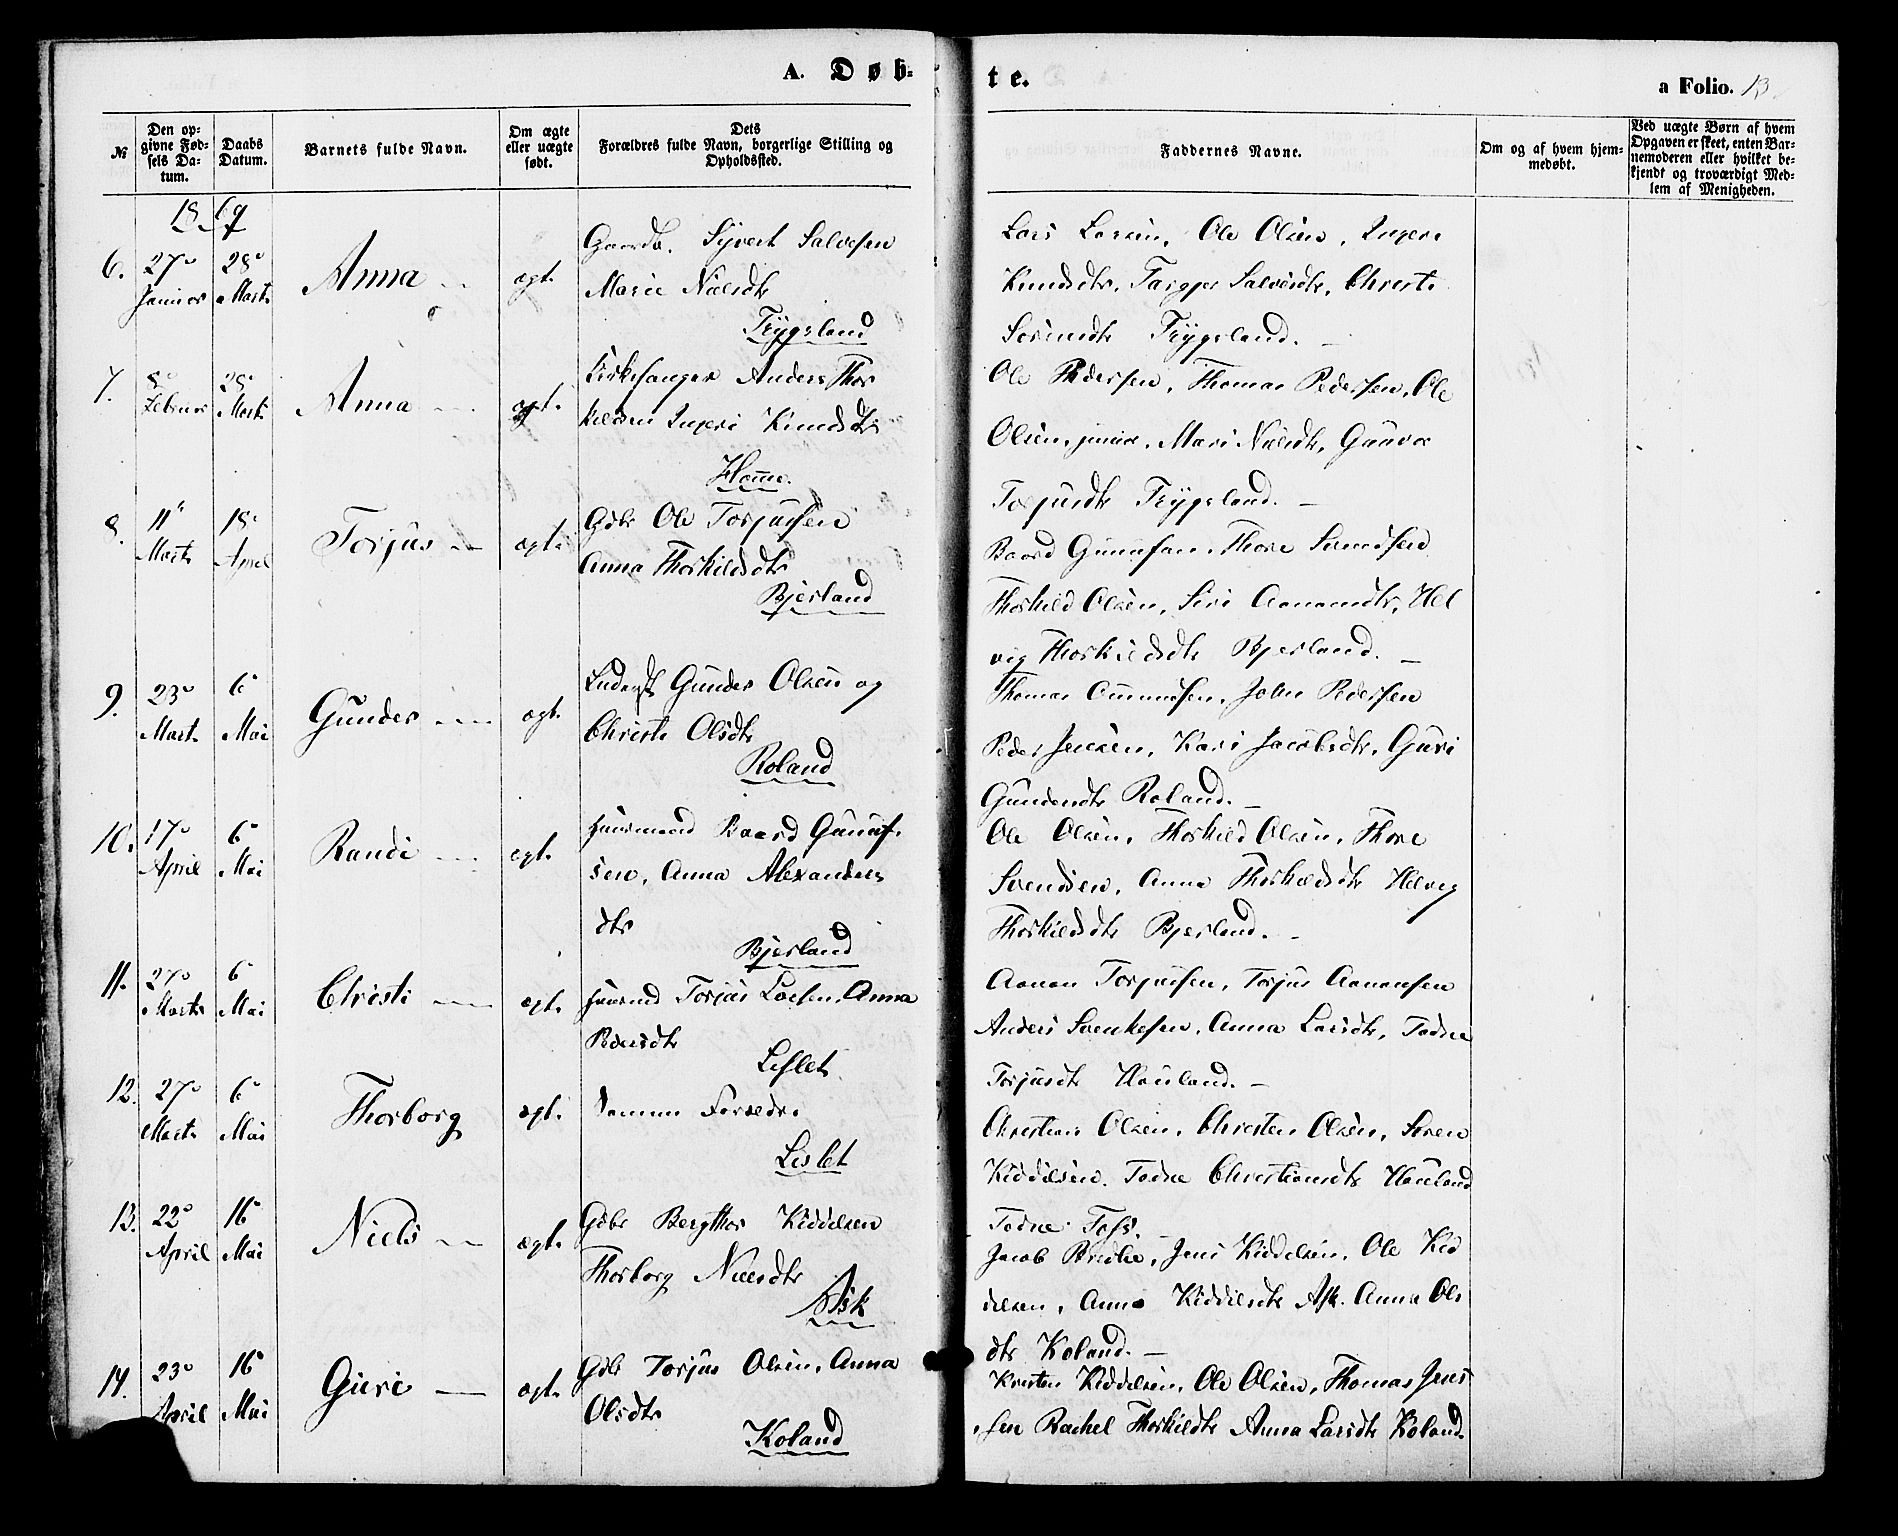 A. Døb-
te.
a Folio. 13.
№
Den opgivne Fødsels Datum.
Daabs Datum.
Barnets fulde Navn.
Om ægte eller uægte født.
Dets Forældres fulde Navn, borgerlige Stilling og Opholdssted.
Faddernes Navne.
Om og af hvem hjemmedøbt.
Ved uægte Børn af hvem Opgaven er skeet, enten Barnemoderen eller hvilket bekjendt og troværdigt Medlem af Menigheden.
1869
6. 27 Januar 28 Marts Anna ægt.
Gaardb. Syvert Salvesen
Marie Nielsdtr
Trygsland
Lars Larsen, Ole Olsen, Inger
Knudsdtr, Targjer Salvesdtr, Christi
Trygsland.
7. 8 Februar 28 Marts Anna ægt.
Kirkesanger Anders Thor
kildsen Ingeri Knudsdtr
Homme.
Ole Pedersen, Thomas Pedersen, Ole
Olsen junior, Mari Nielsdtr, Gunvor
Torjusdtr Trygsland.
8. 11 Marts 18 April Torjus ægt.
Gdbr Ole Torjussen
Anna Thorkildsdtr
Bjerland
Baard Gunufsen, Thore Svendsen
Thorkild Olsen, Siri Aanondtr, Hel
vig Thorkildsdtr Bjerland.
9. 23 Marts 6 Mai Gunder ægt.
Gunder Olsen og
Christi Olsdtr
Roland
Thomas Omundsen, John Pedersen
Peder Jensen, Kari Jacobsdtr, Guri
Gundersdtr Roland.
10. 17 April 6 Mai Randi ægt.
Huusmand Baard Gunuf-
sen, Anna Alexanders
dtr
Bjerland
Ole Olsen, Thorkild Olsen, Thore
Svendsen, Anna Thorkildsdtr Helvig
Thorkildsdtr Bjerland.
11. 27 Marts 6 Mai Christi ægt.
Huusmd Torjus Larsen, Anna
Pedersdtr
Leslet
Aanon Torjussen, Torjus Aanonsen
Anders Svenkesen, Anna Larsdtr, Todne
Torjusdtr Hauland.
12. 27 Marts 6 Mai Thorborg ægt.
Samme Foreldre
Leslet
Christian Olsen, Christen Olsen, Søren
Kiddelsen, Todne Christiansdtr Hauland
Todne
13. 22 April 16 Mai Niels ægt.
Gdbr Bergthor Kiddelsen
Thorborg Nielsdtr
Ask
Jacob Bredlie, Jens Kiddelsen, Ole Kid
delsen, Anna Kiddelsdtr Ask. Anna Ols
dtr Koland.
14. 23 April 16 Mai Guri ægt.
Gdbr Torjus Olsen, Anna
Olsdtr
Koland
Kristen Kiddelsen, Ole Olsen, Thomas Jens
sen Rachel Thorkildtr Anna Larsdtr Koland.